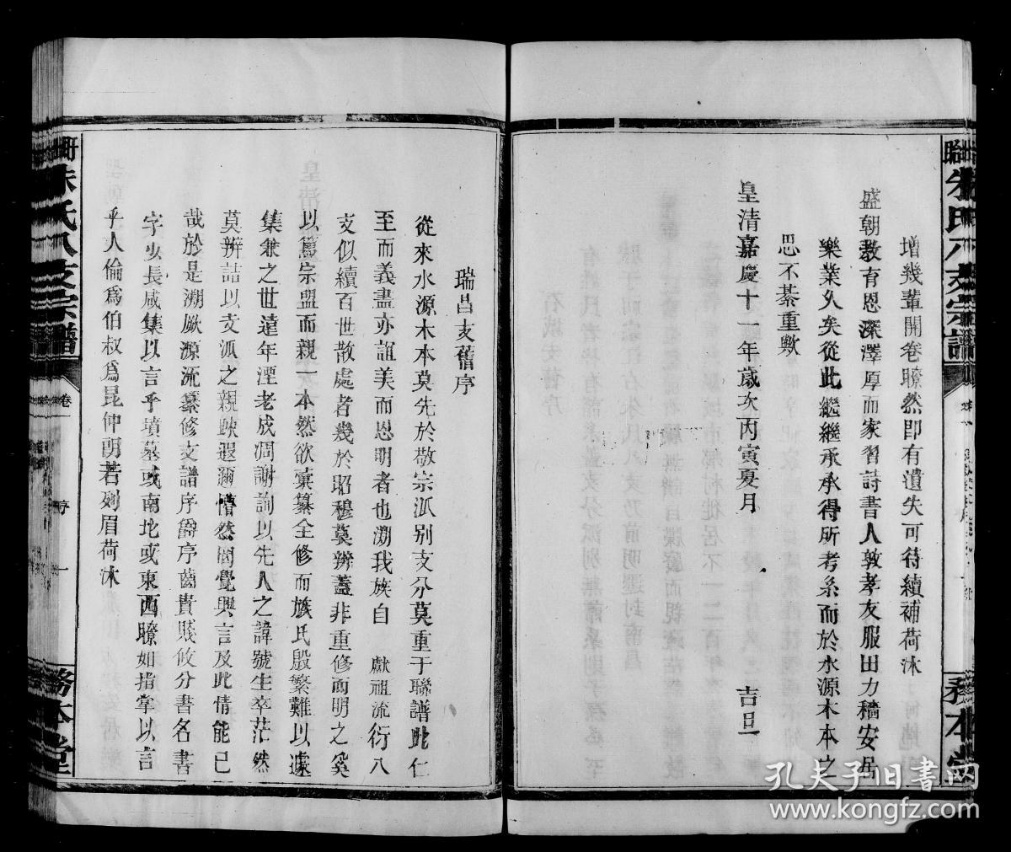 增幾輩開卷瞭然即有遺失可待續補荷沐
盛朝敎育恩深澤厚而家習詩書人敦孝友服田力穡安居
樂業久矣從此繼繼承承得所考系而於水源木本之
思不綦重歟
皇清嘉慶十一年歲次丙寅夏月 吉旦
務本堂
瑞昌支舊序
從來水源木本莫先於敬宗派别支分莫重于聯譜此仁
至而義盡亦誼美而恩明者也溯我族自 獻祖流衍八
支似續百世散處者幾於昭穆莫辨蓋非重修而明之奚
以篤宗盟而親一本然欲彙纂全修而族氏殷繁難以遽
集兼之世遠年湮老成凋謝詢以先人之諱號生卒茫然
莫辨詰以支派之親踈遐邇懵然罔覺興言及此情能已
哉於是溯厥源流纂修支譜序爵序齒貴賤攸分書名書
字少長咸集以言乎墳墓或南北或東西瞭如指掌以言
乎人倫爲伯叔爲昆仲朗若列眉荷沐
朱氏八支宗譜
卷
序
一
務本堂
孔夫子旧书网
www.kongfz.com